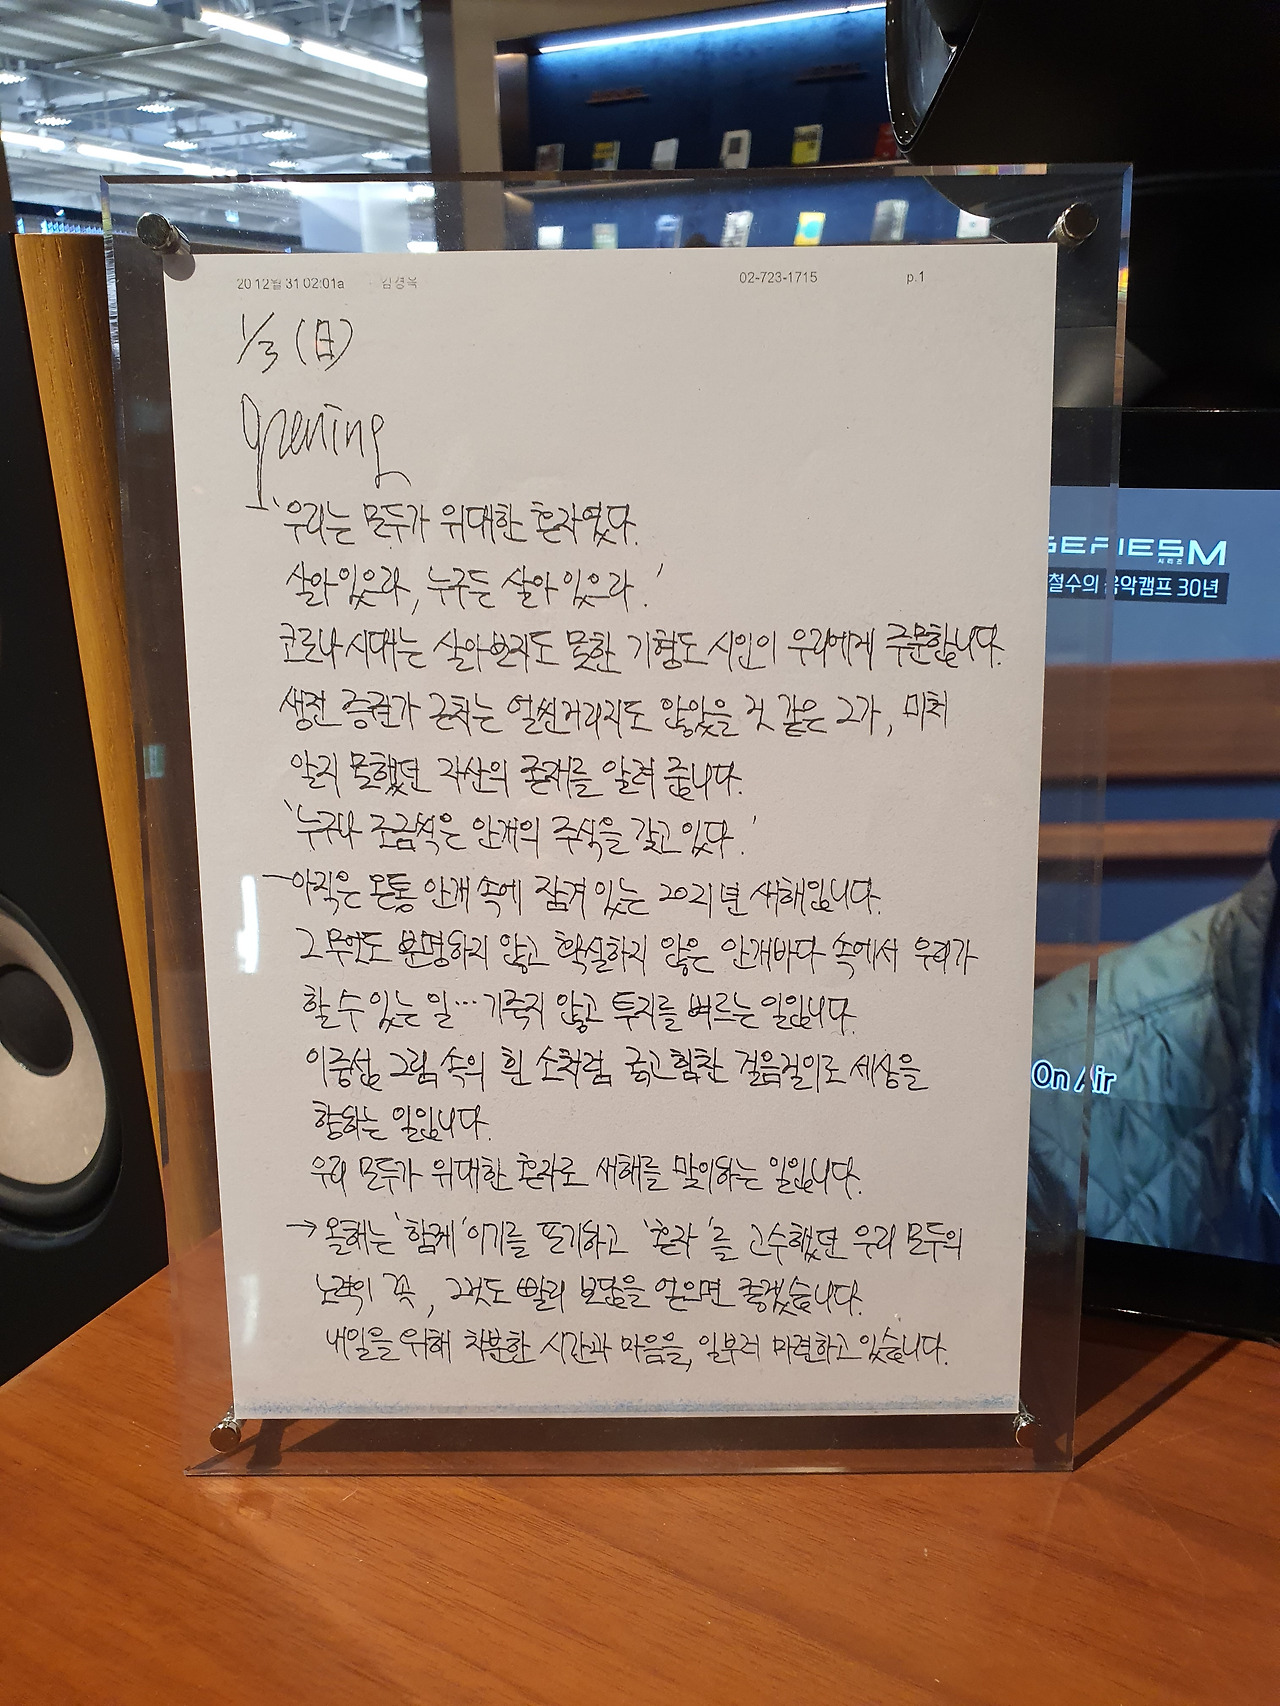 20 12월 31 02:01a 김경옥 02-723-1715 p.1
1/3 (日)
Opening
'우리는 모두가 위대한 혼자였다.
살아 있으라, 누구든 살아 있으라.'
코로나 시대는 살아보지도 못한 기형도 시인이 우리에게 주문합니다.
생전 증권가 근처는 얼씬거리지도 않았을 것 같은 그가, 미처
알지 못했던 자산의 존재를 알려 줍니다.
'누구나 조금씩은 안개의 주식을 갖고 있다.'
→아직은 온통 안개 속에 잠겨 있는 2021년 새해입니다.
그 무엇도 분명하지 않고 확실하지 않은 안개바다 속에서 우리가
할 수 있는 일… 기죽지 않고 투지를 벼르는 일입니다.
이중섭 그림 속의 흰 소처럼 굵고 힘찬 걸음걸이로 세상을
향하는 일입니다.
우리 모두가 위대한 혼자로 새해를 맞이하는 일입니다.
→올해는 '함께'이기를 포기하고 '혼자'를 고수했던 우리 모두의
노력이 꼭, 그것도 빨리 보답을 얻으면 좋겠습니다.
내일을 위해 차분한 시간과 마음을, 일부러 마련하고 있습니다.
SERIES M
시리즈
철수의 음악캠프 30년
On Air